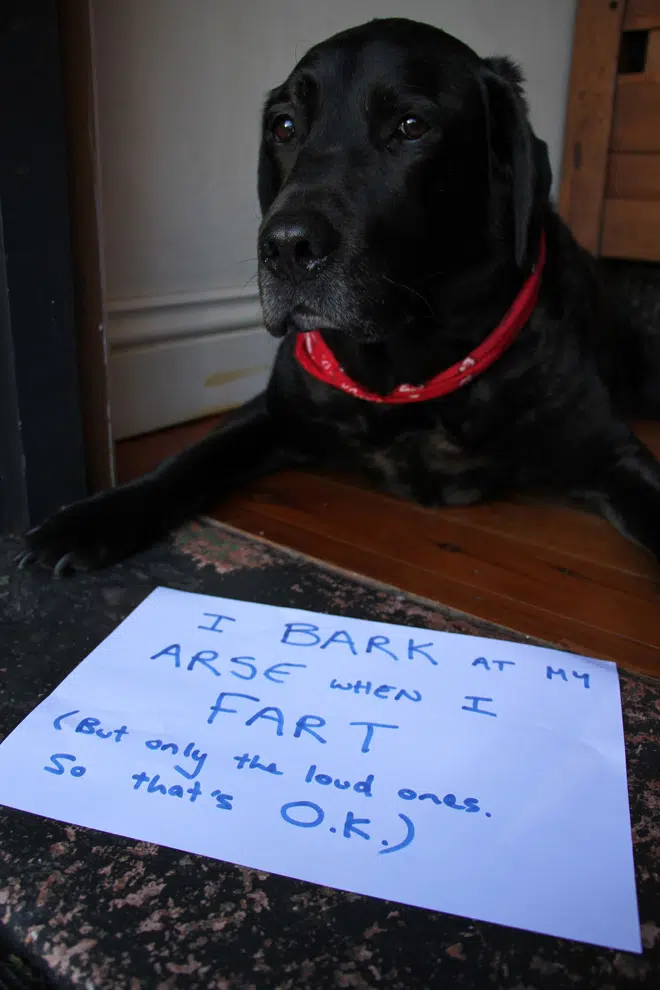 I BARK AT MY
ARSE WHEN I
FART
(But only the loud ones.
So that's O.K.)